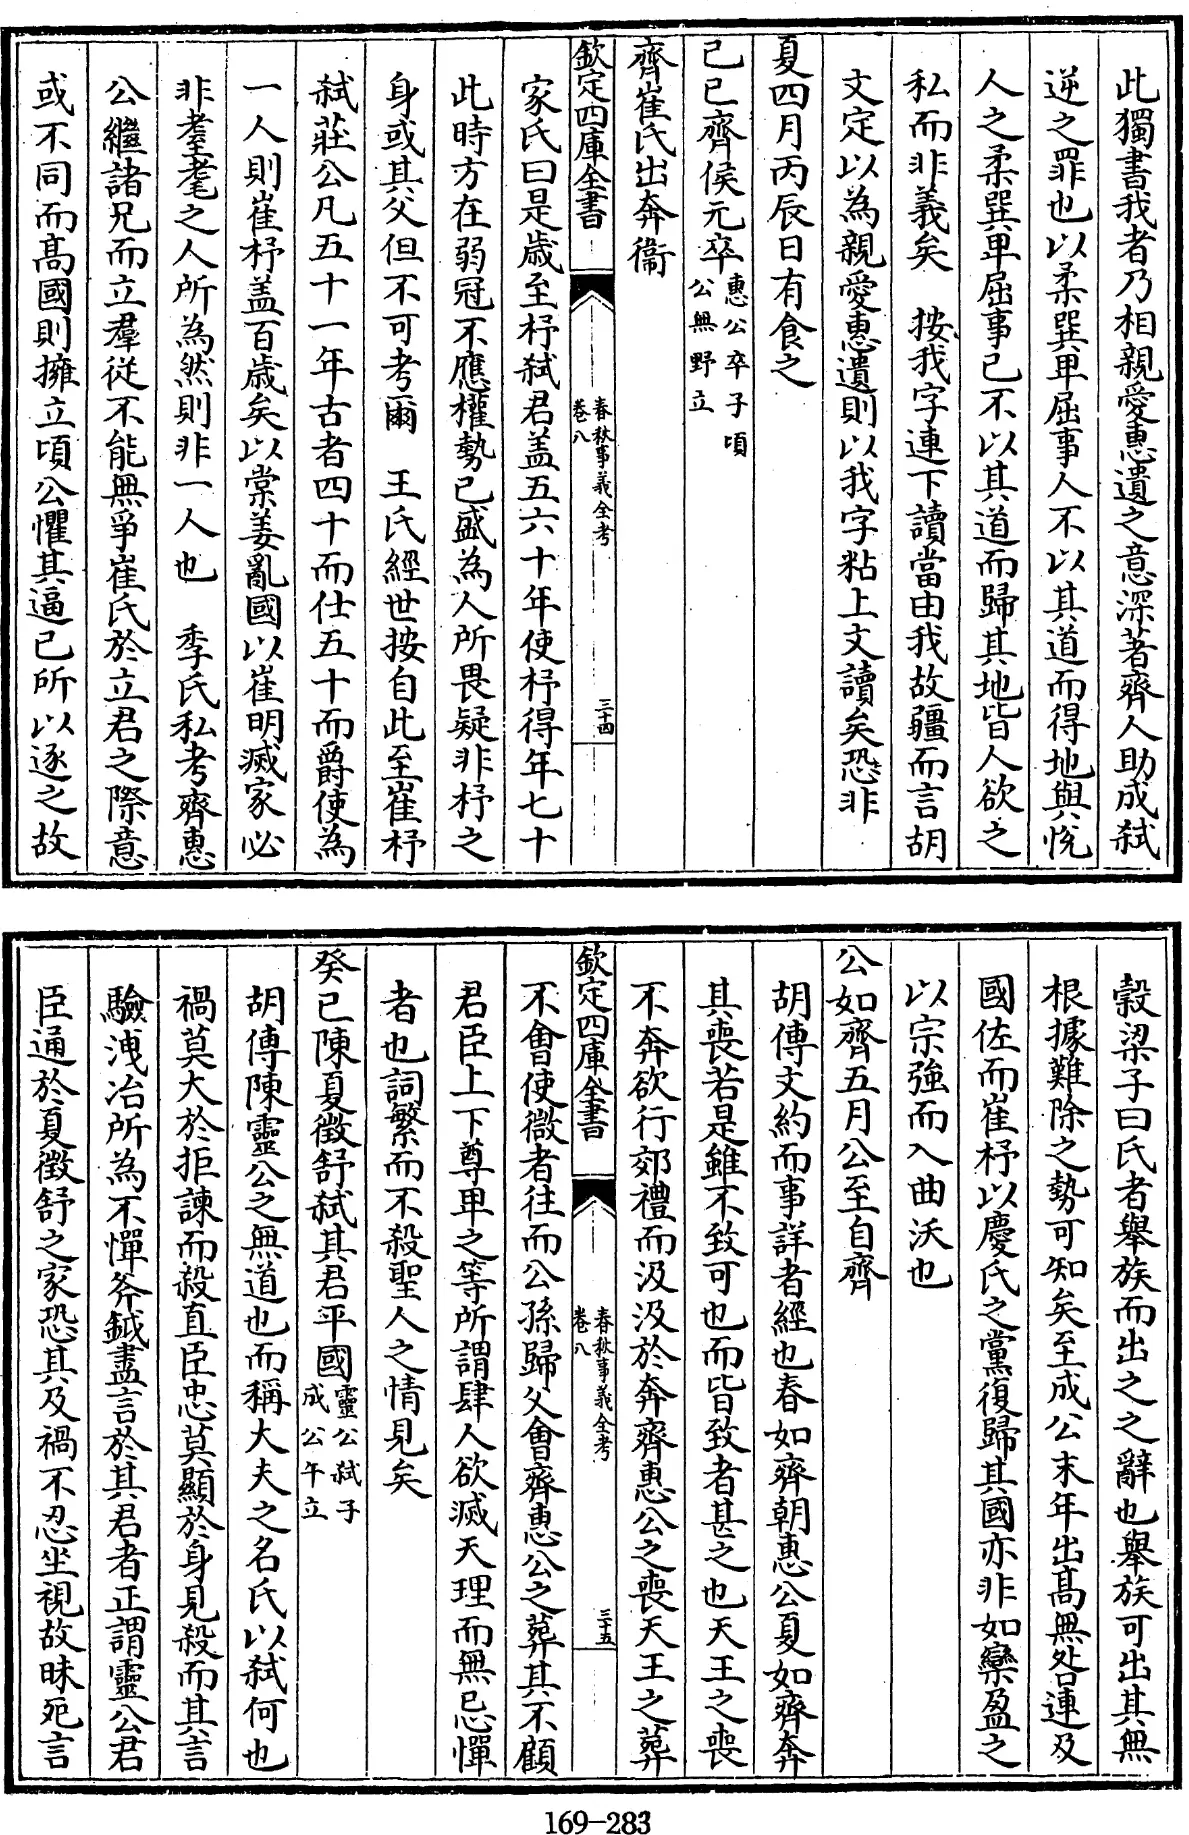 此獨書我者乃相親愛惠遺之意深著齊人助成弑
逆之罪也以柔巽卑屈事人不以其道而得地與恱
人之柔巽卑屈事已不以其道而歸其地皆人欲之
私而非義矣　按我字連下讀當由我故疆而言胡
文定以為親愛惠遺則以我字粘上文讀矣恐非
夏四月丙辰日有食之
己巳齊侯元卒惠公卒子頃公無野立
齊崔氏出奔衞
欽定四庫全書　春秋事義全考　卷八　三十四
家氏曰是歲至杼弑君盖五六十年使杼得年七十
此時方在弱冠不應權勢已盛為人所畏疑非杼之
身或其父但不可考爾　王氏經世按自此至崔杼
弑莊公凡五十一年古者四十而仕五十而爵使為
一人則崔杼盖百歲矣以棠姜亂國以崔明滅家必
非耋耄之人所為然則非一人也　季氏私考齊惠
公繼諸兄而立羣從不能無爭崔氏於立君之際意
或不同而髙國則擁立頃公懼其逼已所以逐之故
穀梁子曰氏者舉族而出之之辭也舉族可出其無
根據難除之勢可知矣至成公末年出髙無咎連及
國佐而崔杼以慶氏之黨復歸其國亦非如欒盈之
以宗強而入曲沃也
公如齊五月公至自齊
胡傳文約而事詳者經也春如齊朝惠公夏如齊奔
其喪若是雖不致可也而皆致者甚之也天王之喪
不奔欲行郊禮而汲汲於奔齊惠公之喪天王之葬
欽定四庫全書　春秋事義全考　卷八　三十五
不會使微者往而公孫歸父會齊惠公之葬其不顧
君臣上下尊卑之等所謂肆人欲滅天理而無忌憚
者也詞繁而不殺聖人之情見矣
癸巳陳夏徵舒弑其君平國靈公弑子成公午立
胡傳陳靈公之無道也而稱大夫之名氏以弑何也
禍莫大於拒諫而殺直臣忠莫顯於身見殺而其言
驗洩冶所為不憚斧鉞盡言於其君者正謂靈公君
臣通於夏徵舒之家恐其及禍不忍坐視故昧死言
169-283